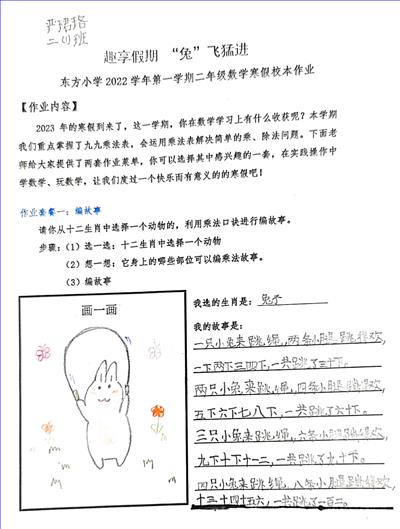 严珺珞
二(1)班
趣享假期 “兔”飞猛进
东方小学2022学年第一学期二年级数学寒假校本作业
【作业内容】
2023年的寒假到来了，这一学期，你在数学学习上有什么收获呢？本学期
我们重点掌握了九九乘法表，会运用乘法表解决简单的乘、除法问题。下面老
师给大家提供了两套作业菜单，你可以选择其中感兴趣的一套，在实践操作中
学数学、玩数学，让我们度过一个快乐而有意义的的寒假吧！
作业套餐一：编故事
请你从十二生肖中选择一个动物的，利用乘法口诀进行编故事。
步骤：（1）选一选：十二生肖中选择一个动物
（2）想一想：它身上的哪些部位可以编乘法故事。
（3）编故事
画一画
我选的生肖是：兔子
我的故事是：
一只小兔来跳绳，两条小腿跳得欢，
一下两下三四下，一共跳了三十下。
两只小兔来跳绳，四条小腿跳得欢，
五下六下七八下，一共跳了六十下。
三只小兔来跳绳，六条小腿跳得欢，
九下十下十一二，一共跳了九十下。
四只小兔来跳绳，八条小腿跳得欢，
十三十四十五六，一共跳了一百二。